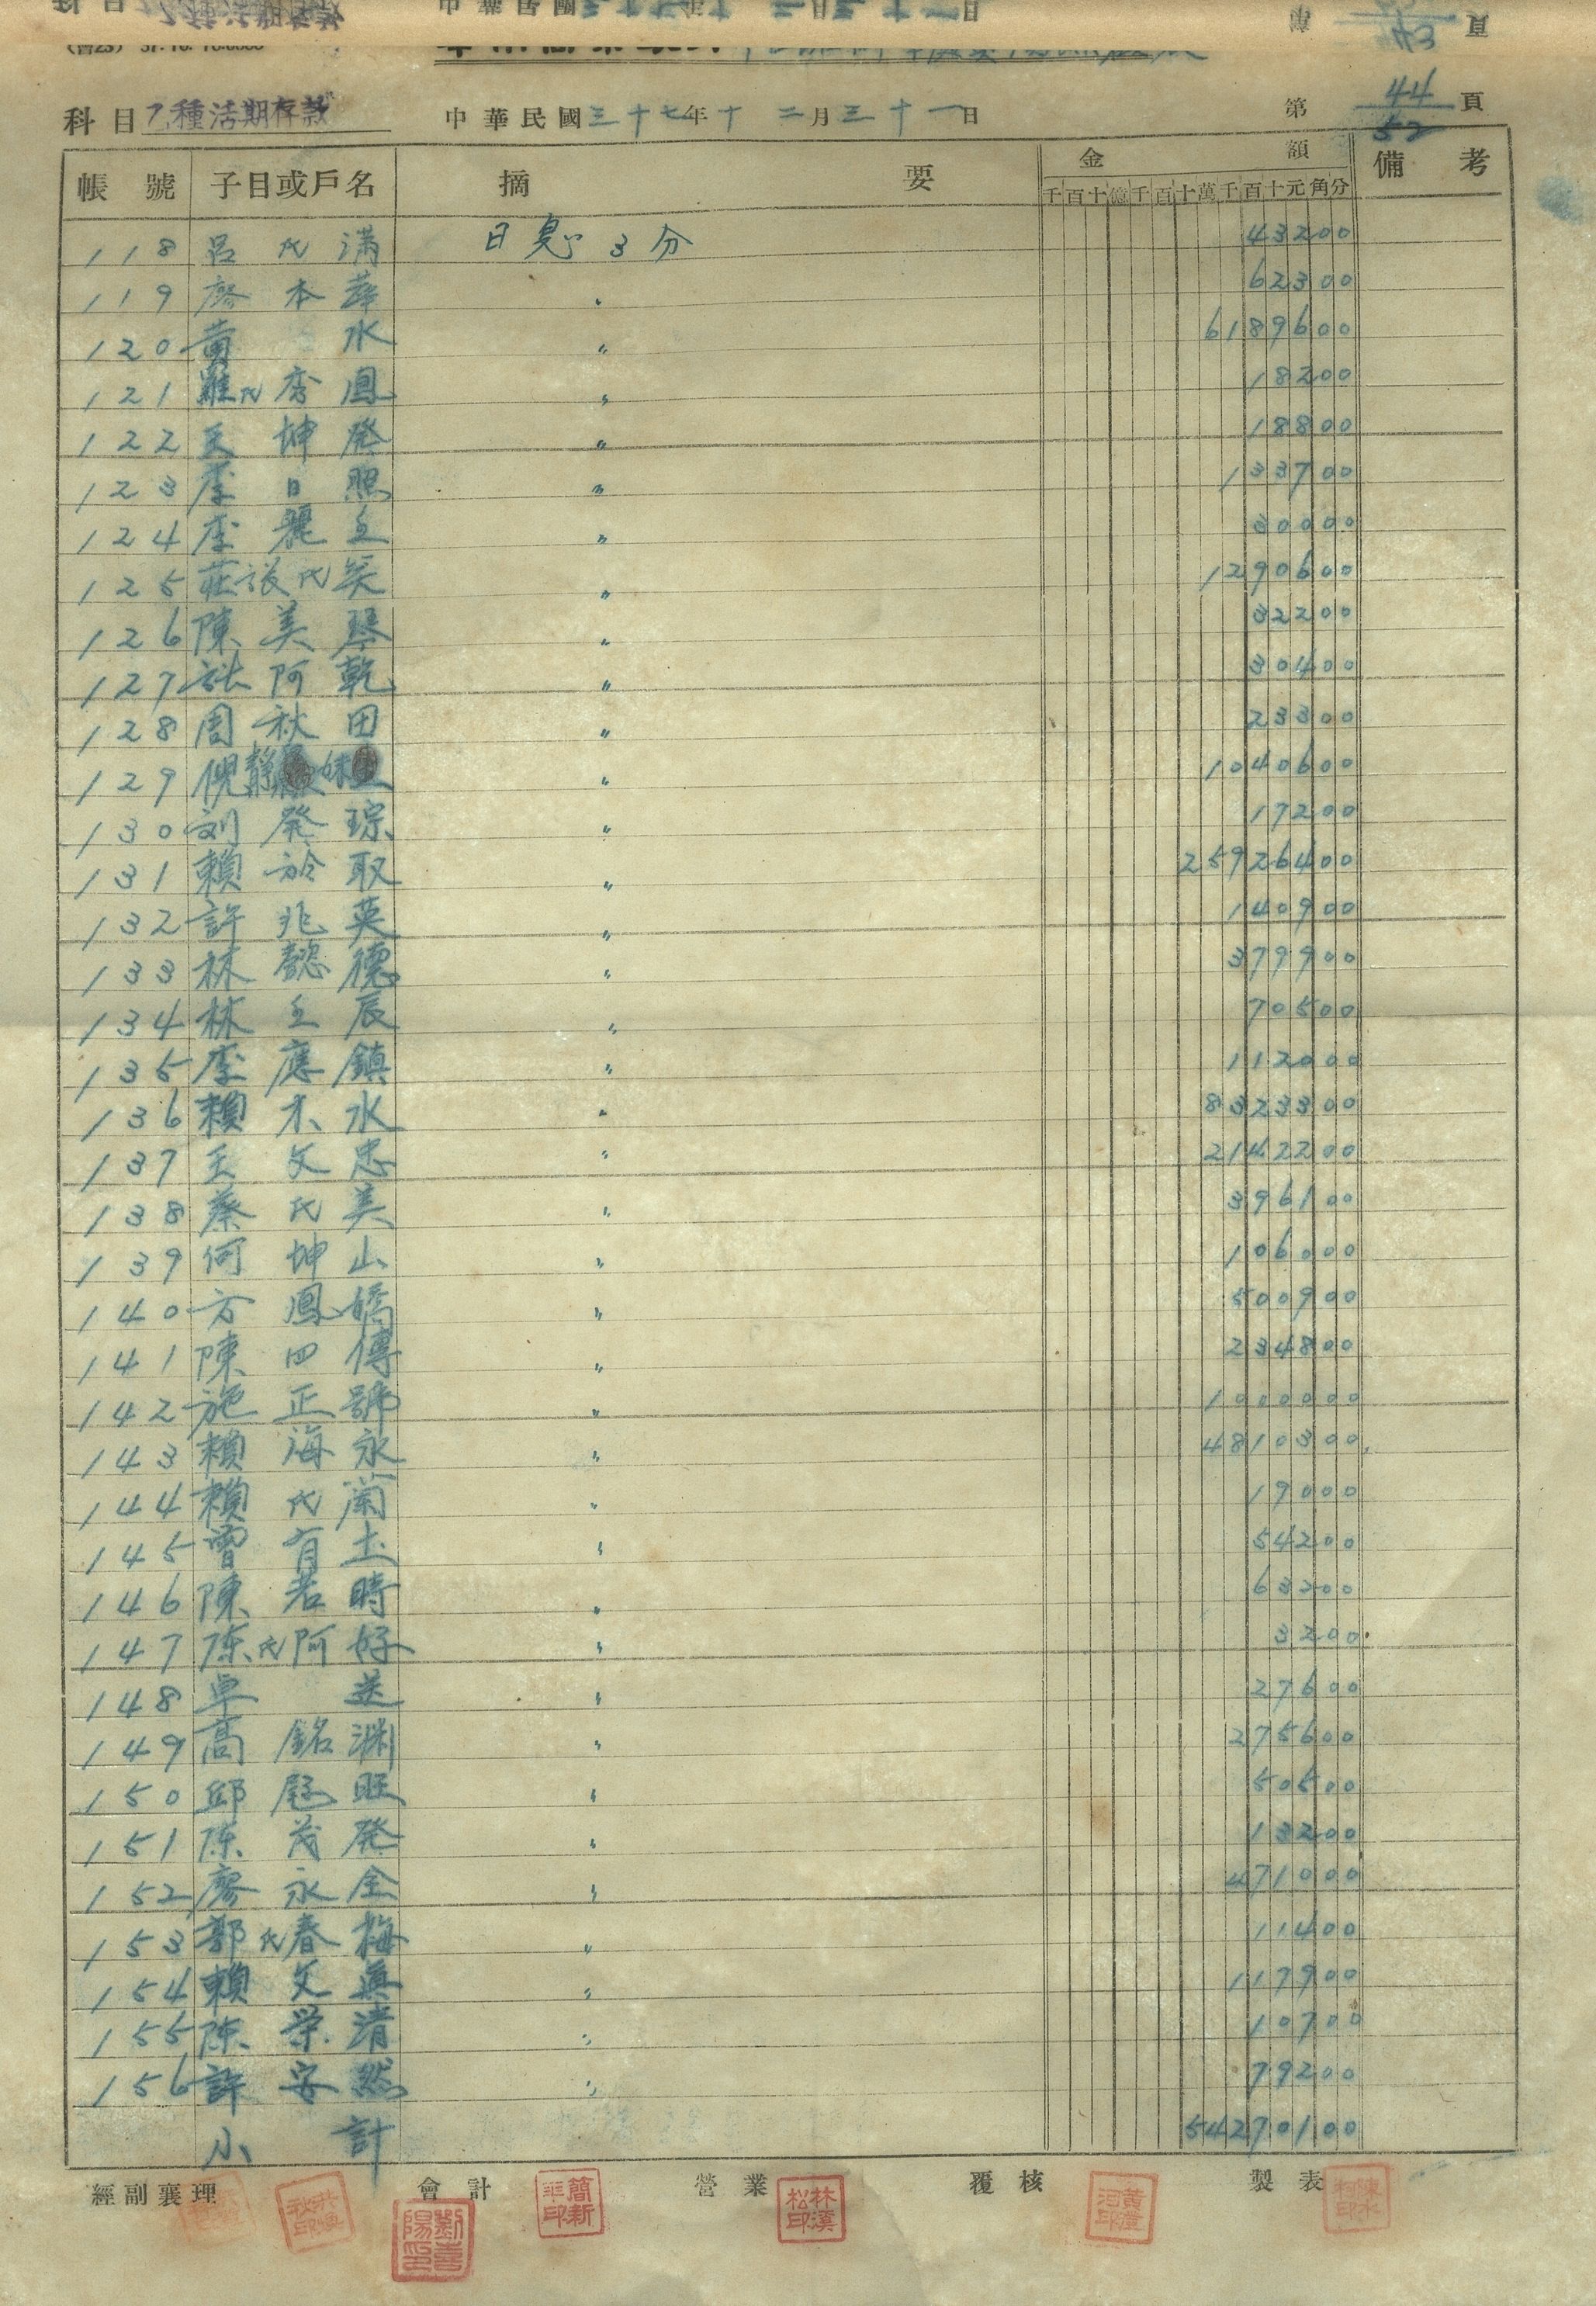 中華民國三十七年十二月三十一日
43 頁
科目 乙種活期存款 中華民國三十七年十二月三十一日 第 44/52 頁
帳號 子目或戶名 摘要 金額 備考
千百十億千百十萬千百十元角分
118 呂氏滿 日息3分 43200
119 廖本 〃 62300
120 黃水 〃 6189600
121 羅氏秀鳳 〃 18200
122 王坤發 〃 18800
123 李日照 〃 133700
124 李麗玉 〃 30000
125 莊張氏笑 〃 1290600
126 陳美琴 〃 32200
127 張阿乾 〃 30400
128 周秋田 〃 23300
129 倪靜妹 〃 1040600
130 刘發琮 〃 17200
131 賴於取 〃 25926400
132 許兆英 〃 140900
133 林懿德 〃 379900
134 林玉辰 〃 70500
135 李應鎮 〃 112000
136 賴木水 〃 8323300
137 王文忠 〃 2142200
138 蔡氏美 〃 396100
139 何坤山 〃 106000
140 方鳳嬌 〃 500900
141 陳四傳 〃 234800
142 施正號 〃 1000000
143 賴海永 〃 4810300
144 賴氏蘭 〃 19000
145 曾有土 〃 54200
146 陳若時 〃 63200
147 陈氏阿好 〃 3200
148 卓送 〃 27600
149 高銘渊 〃 275600
150 邱旺 〃 50500
151 陈茂發 〃 13200
152 廖永全 〃 471000
153 郭氏春梅 〃 11400
154 賴文真 〃 117900
155 陈荣清 〃 10700
156 許安然 〃 79200
小計 54270100
經副襄理 會計 營業 覆核 製表
劉喜陽印 簡新平印 林漢松印 黃潼河印 陳水柯印